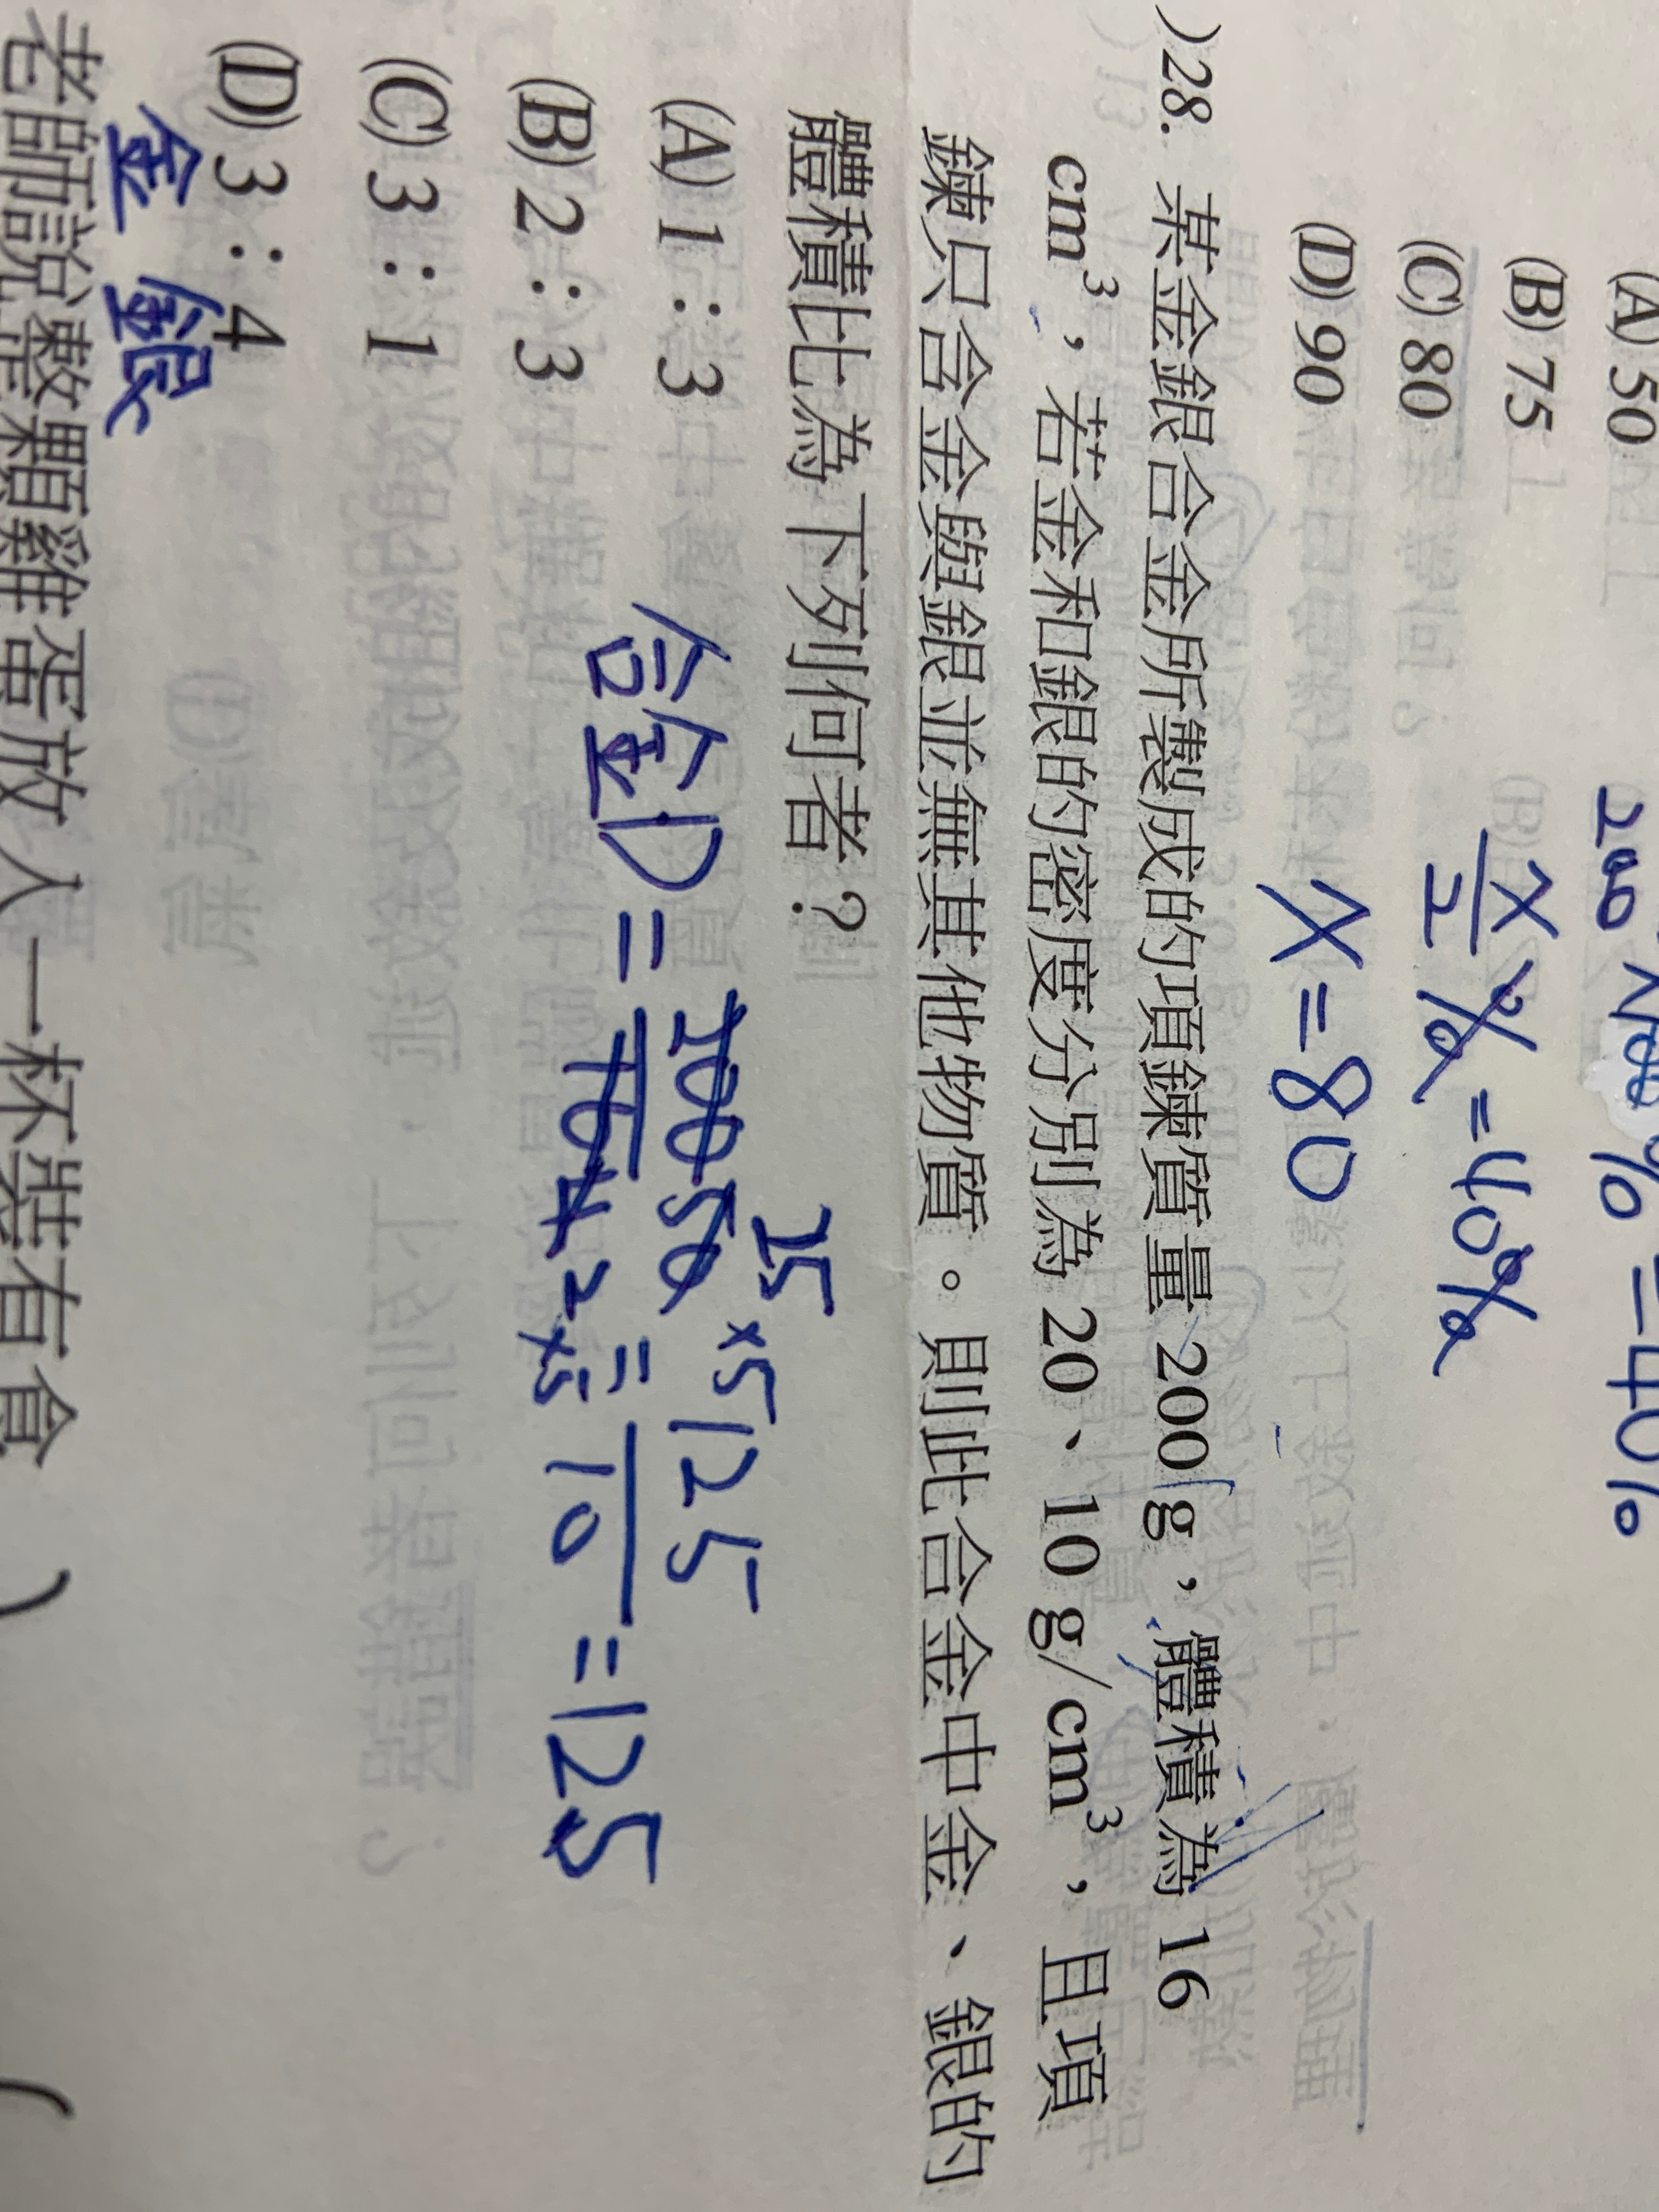 (A) 50
(B) 75
(C) 80
(D) 90
200
% = 40%
x/2 % = 40%
x = 80
)28. 某金銀合金所製成的項鍊質量 200 g，體積為 16
cm³，若金和銀的密度分別為 20、10 g/cm³，且項
鍊只含金與銀並無其他物質。則此合金中金、銀的
體積比為下列何者？
(A) 1：3
(B) 2：3
(C) 3：1
(D) 3：4
金 銀
合金D = 200 50 25 ×5 125
16 4 2 ×5 = 10 = 125
老師說整顆雞蛋放入一杯裝有食